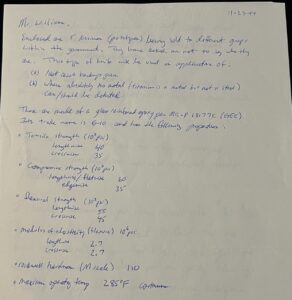 11-23-99
Mr. William.
Enclosed are 5 knives (prototypes) being sold to different groups
within the government. They have asked me not to say who they
are. This type of knife will be used in application of:
(A) last resort backup gun
(B) where absolutely no metal (titanium is a metal but not a steel)
can/should be detected
These are made of a glass reinforced epoxy per MIL-P 18177C (GEE)
Its trade name is G-10 and has the following properties:
• Tensile strength (10³ psi)
lengthwise 40
crosswise 35
• Compressive strength (10³ psi)
lengthwise/flatwise 60
edgewise 35
• Flexural strength (10³ psi)
lengthwise 55
crosswise 45
• Modulus of elasticity (flexure) 10⁶ psi
lengthwise 2.7
crosswise 2.2
• Rockwell hardness (M scale) 110
• Maximum operating temp 285°F continuous